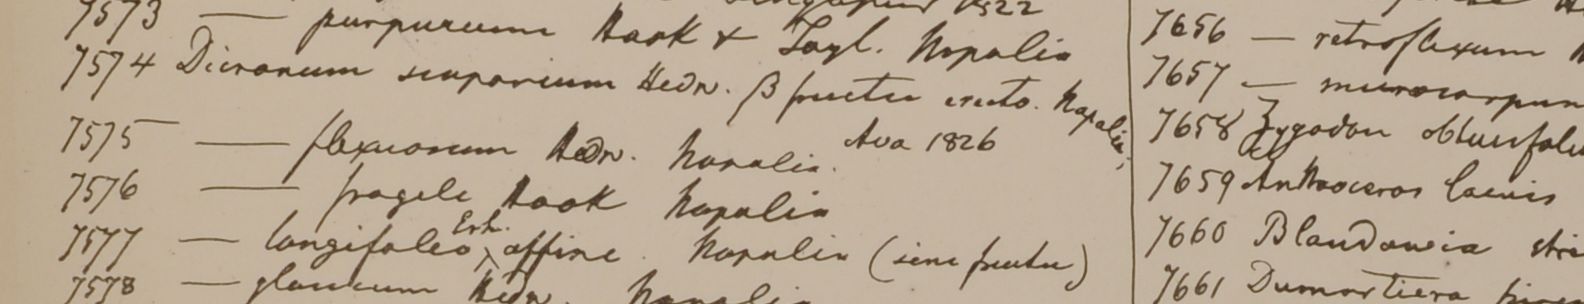 Singapur 1822
7573 — purpureum Hook & Tayl. Napalia
7574 Dicranum scoparium Hedw. β fructu erecto. Napalia;
Ava 1826
7575 — flexuosum Hedw. Napalia.
7576 — fragile Hook Napalia
7577 — longifolio Erh. affine. Napalia (sine fructu)
7578 — glaucum Hedw. Napalia
7656 — retroflexum
7657 — microcarpum
7658 Zygodon obtusifoliu
7659 Anthoceros laevis
7660 Blandowia stri
7661 Dumortiera